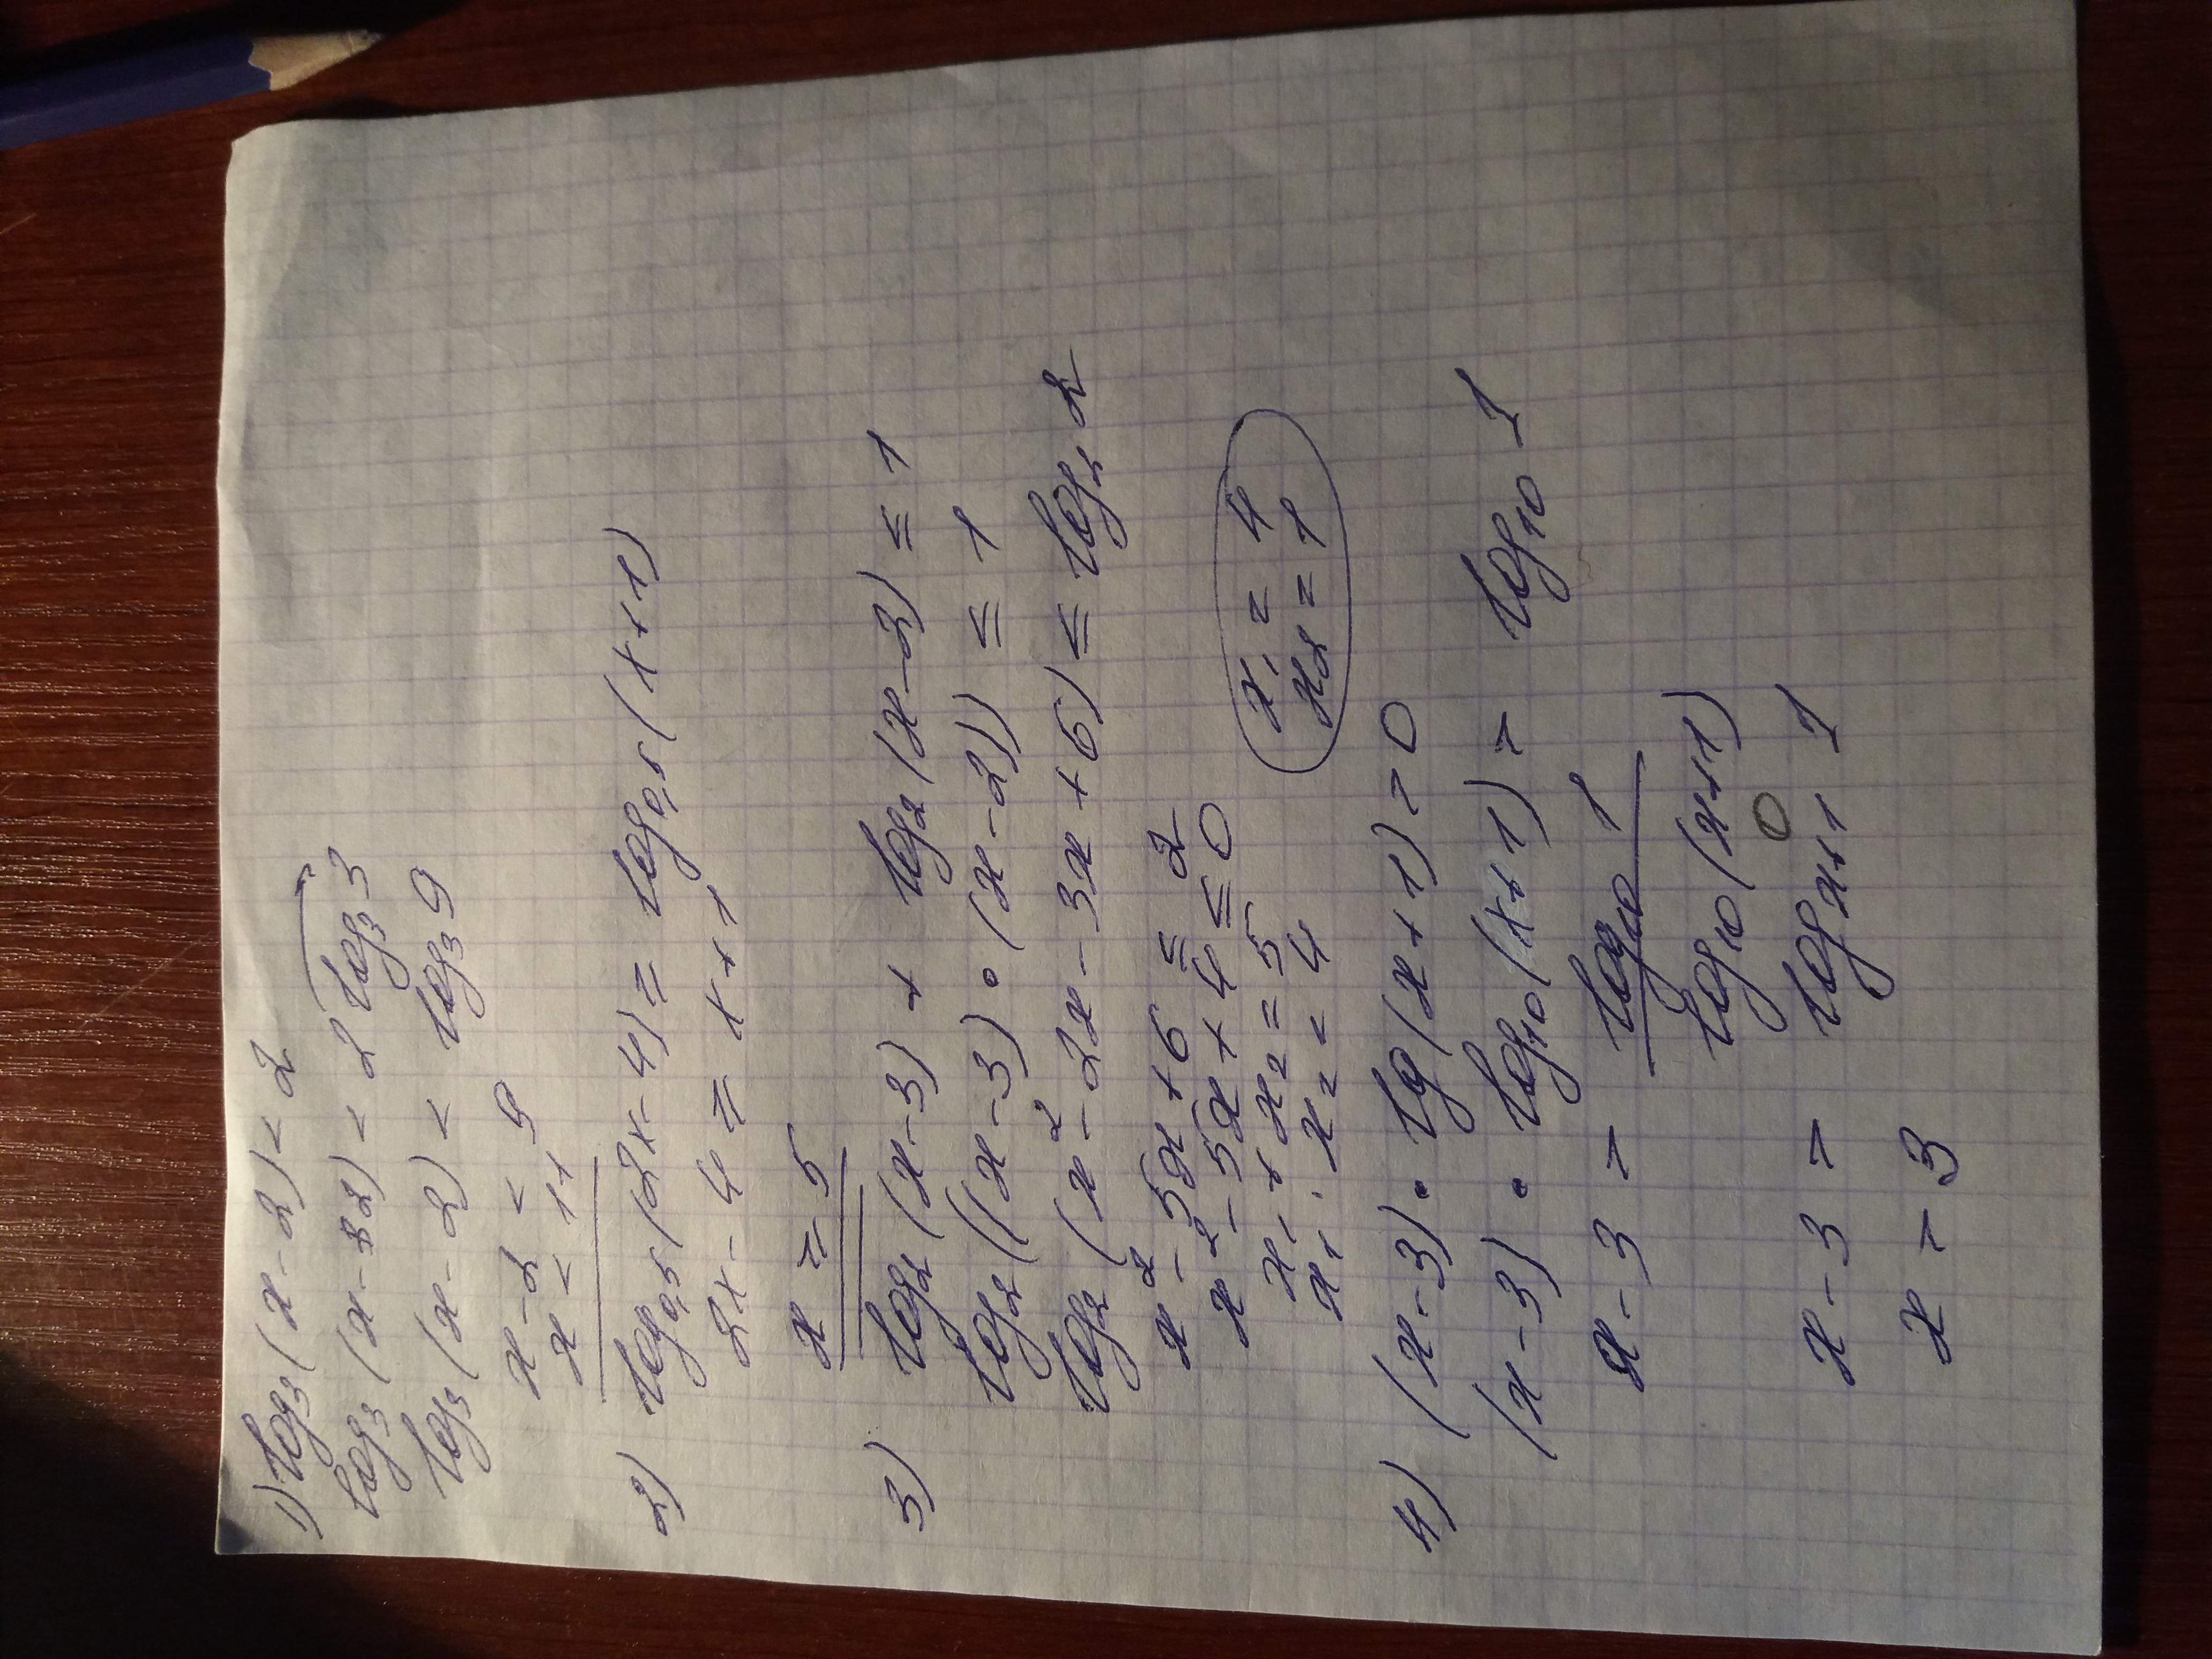 1) log₃(x-2) < 2
log₃(x-32) < 2 log₃3
log₃(x-2) < log₃9
x-2 < 9
x < 11
2) log₀,₅(2x-4) = log₀,₅(x+1)
2x-4 = x+1
x = 5
3) log₂(x-3) + log₂(x-2) ≤ 1
log₂((x-3)·(x-2)) ≤ 1
log₂(x²-2x-3x+6) ≤ log₂2
x²-5x+6 ≤ 2
x²-5x+4 ≤ 0
x₁+x₂=5
x₁·x₂=4
x₁=4
x₂=1
4) (x-3)·lg(x+1)=0
(x-3)·log₁₀(x+1) = log₁₀1
x-3 = log₁₀1
log₁₀(x+1)
0
x-3 = logₓ₊₁1
x = 3